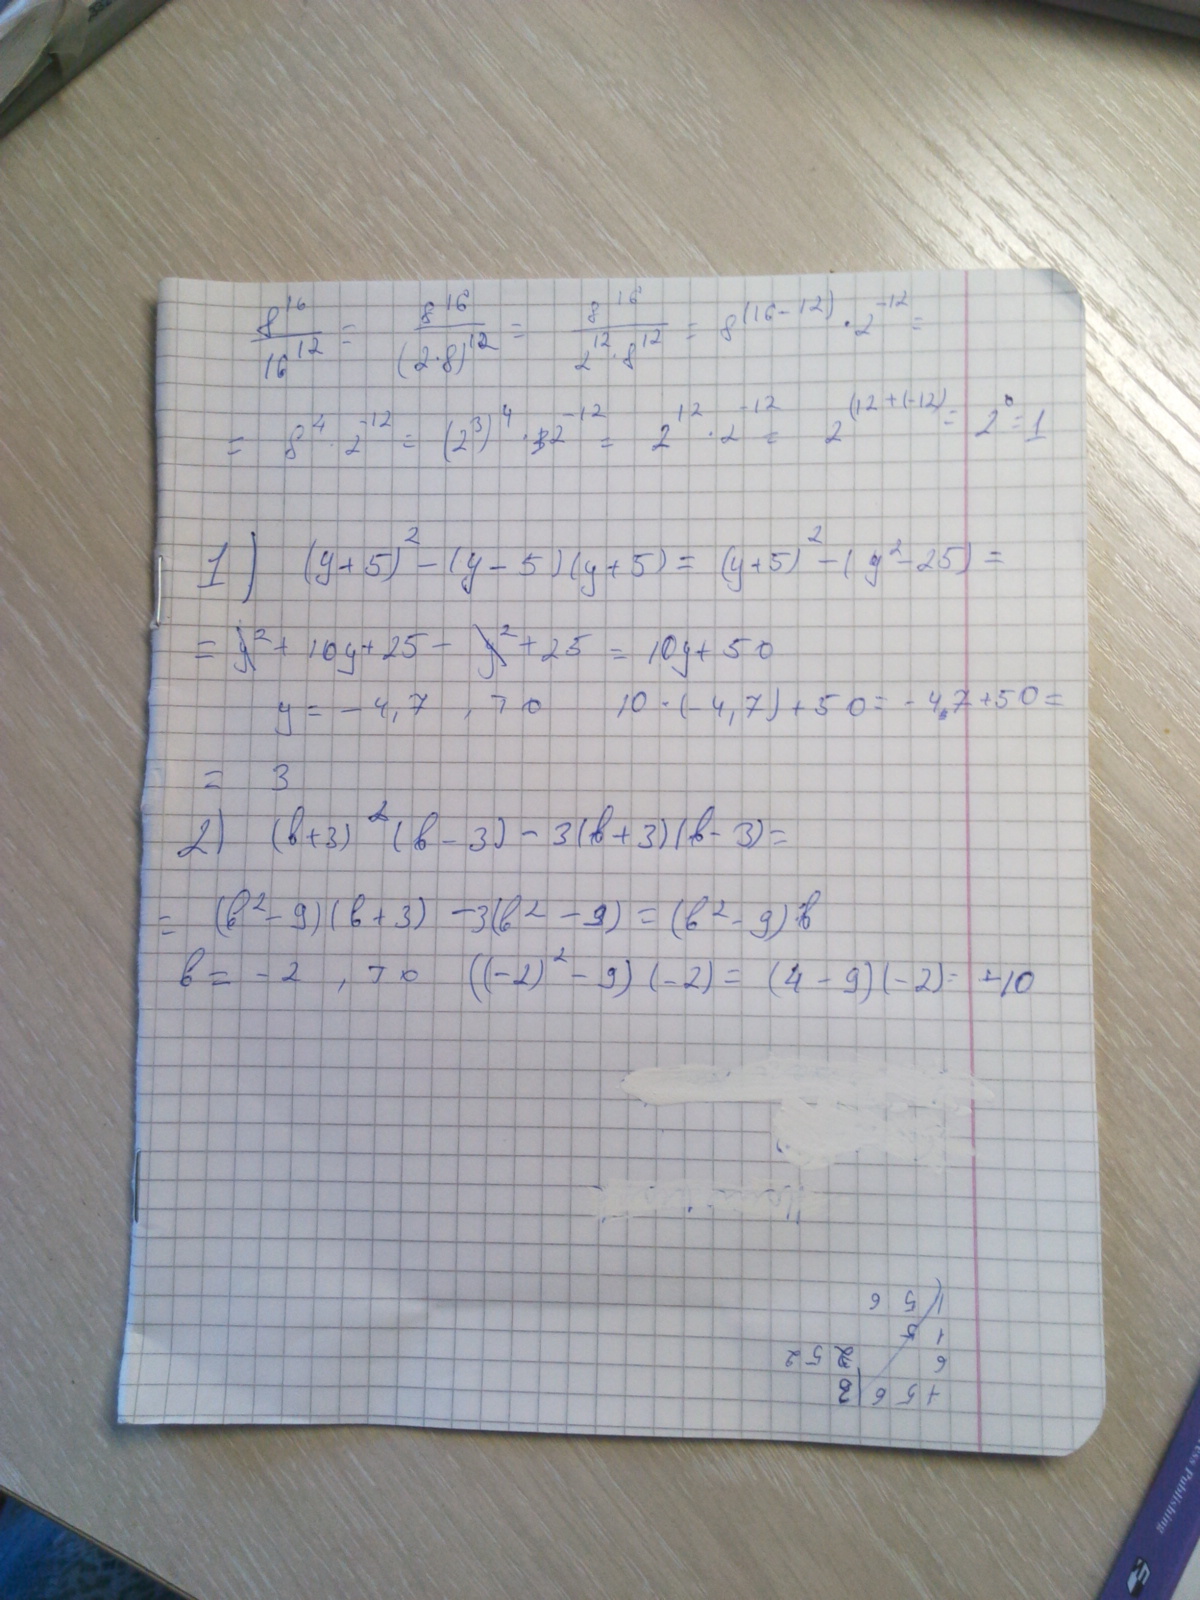 8^16/16^12 = 8^16/(2·8)^12 = 8^16/(2^12·8^12) = 8^(16-12)·2^-12 =
= 8^4·2^-12 = (2^3)^4·2^-12 = 2^12·2^-12 = 2^(12+(-12) = 2^0 = 1
1) (y+5)^2-(y-5)(y+5) = (y+5)^2-(y^2-25) =
= y^2+10y+25-y^2+25 = 10y+50
y = -4,7 , то 10·(-4,7)+50 = -4,7+50 =
= 3
2) (в+3)^2(в-3)-3(в+3)(в-3) =
= (в^2-9)(в+3) -3(в^2-9) = (в^2-9)в
в = -2 , то ((-2)^2-9)(-2) = (4-9)(-2) = +10
ess Publishing